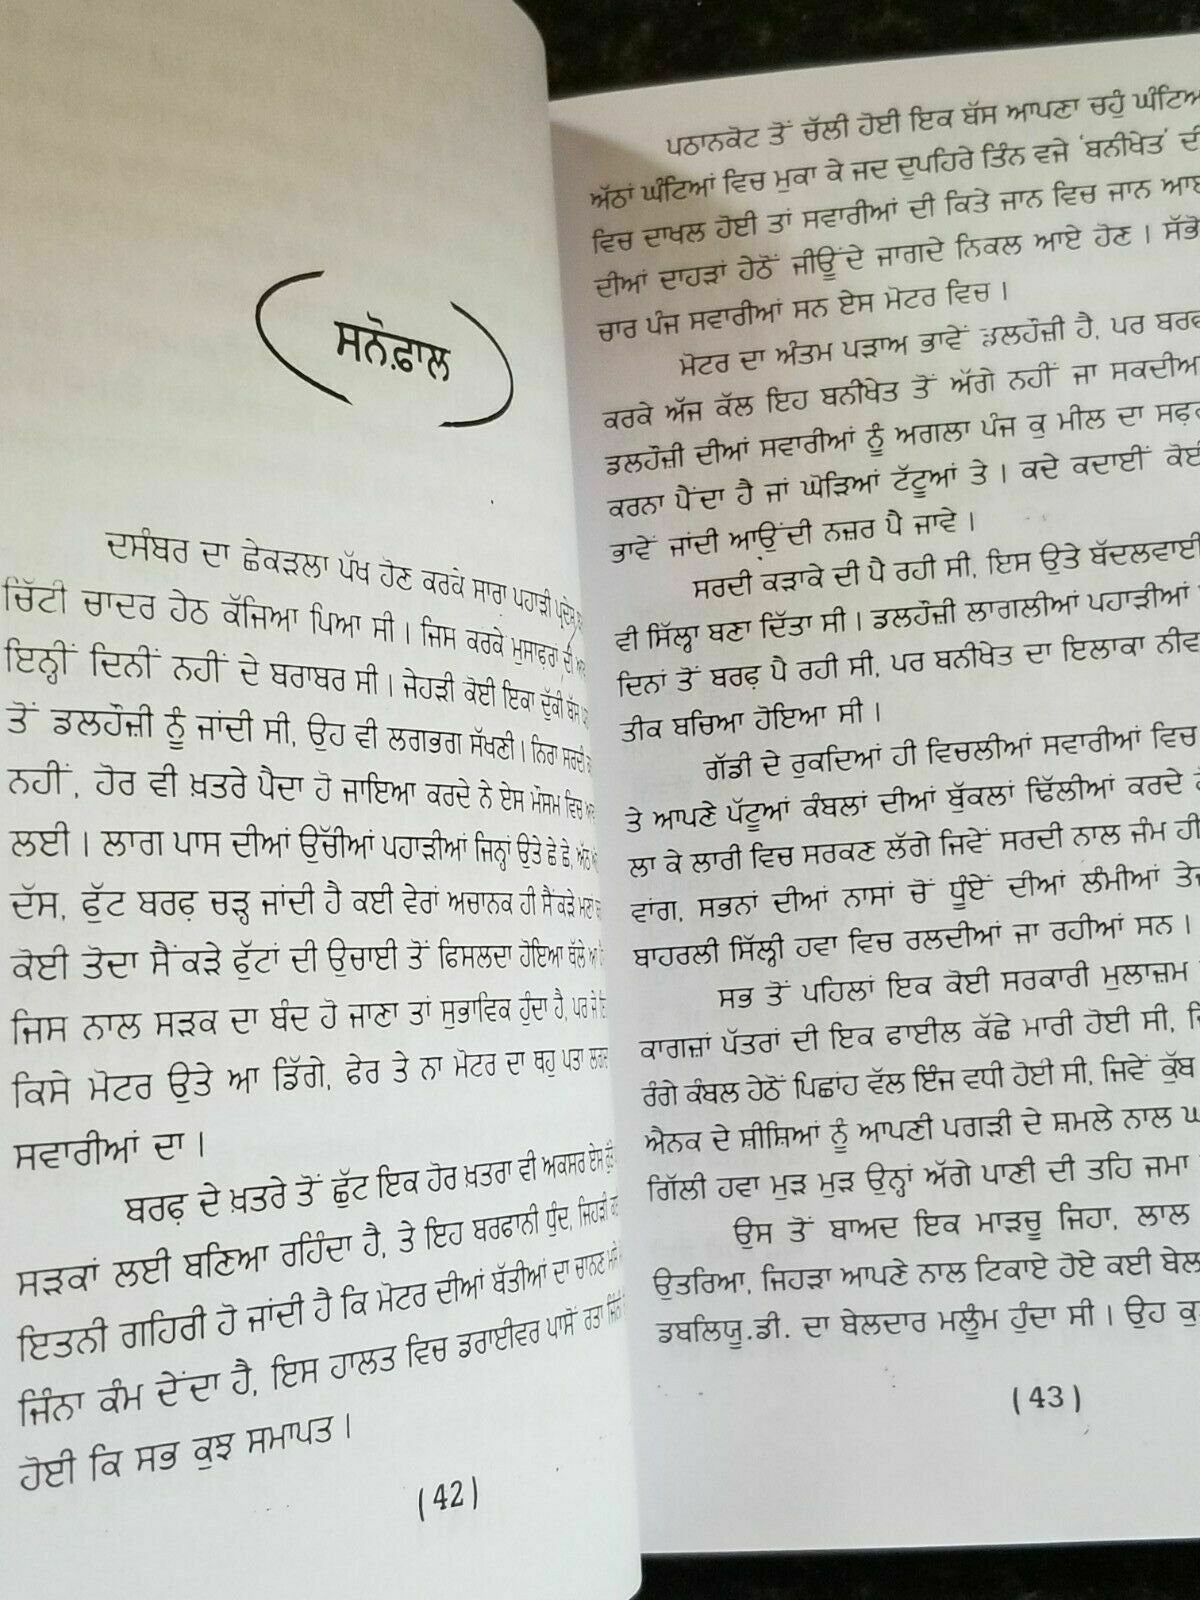 ਸਨੋਫ਼ਾਲ
ਦਸੰਬਰ ਦਾ ਛੇਕੜਲਾ ਪੱਖ ਹੋਣ ਕਰਕੇ ਸਾਰਾ ਪਹਾੜੀ ਪ੍ਰਦੇਸ਼
ਚਿੱਟੀ ਚਾਦਰ ਹੇਠ ਕੱਜਿਆ ਪਿਆ ਸੀ। ਜਿਸ ਕਰਕੇ ਮੁਸਾਫ਼ਰਾਂ ਦੀ
ਇਨ੍ਹੀਂ ਦਿਨੀਂ ਨਹੀਂ ਦੇ ਬਰਾਬਰ ਸੀ। ਜੇਹੜੀ ਕੋਈ ਇਕਾ ਦੁੱਕੀ ਬੱਸ
ਤੋਂ ਡਲਹੌਜ਼ੀ ਨੂੰ ਜਾਂਦੀ ਸੀ, ਉਹ ਵੀ ਲਗਭਗ ਸੱਖਣੀ। ਨਿਰਾ ਸਰਦੀ
ਨਹੀਂ, ਹੋਰ ਵੀ ਖ਼ਤਰੇ ਪੈਦਾ ਹੋ ਜਾਇਆ ਕਰਦੇ ਨੇ ਏਸ ਮੌਸਮ ਵਿਚ
ਲਈ। ਲਾਗ ਪਾਸ ਦੀਆਂ ਉੱਚੀਆਂ ਪਹਾੜੀਆਂ ਜਿਨ੍ਹਾਂ ਉਤੇ ਛੇ ਛੇ, ਅੱਠ
ਦੱਸ, ਫੁੱਟ ਬਰਫ਼ ਚੜ੍ਹ ਜਾਂਦੀ ਹੈ ਕਈ ਵੇਰਾਂ ਅਚਾਨਕ ਹੀ ਸੈਂਕੜੇ ਮਣਾਂ
ਕੋਈ ਤੋਦਾ ਸੈਂਕੜੇ ਫੁੱਟਾਂ ਦੀ ਉਚਾਈ ਤੋਂ ਫਿਸਲਦਾ ਹੋਇਆ ਥੱਲੇ
ਜਿਸ ਨਾਲ ਸੜਕ ਦਾ ਬੰਦ ਹੋ ਜਾਣਾ ਤਾਂ ਸੁਭਾਵਿਕ ਹੁੰਦਾ ਹੈ, ਪਰ ਜੇ
ਕਿਸੇ ਮੋਟਰ ਉਤੇ ਆ ਡਿੱਗੇ, ਫੇਰ ਤੇ ਨਾ ਮੋਟਰ ਦਾ ਥਹੁ ਪਤਾ
ਸਵਾਰੀਆਂ ਦਾ।
ਬਰਫ਼ ਦੇ ਖ਼ਤਰੇ ਤੋਂ ਛੁੱਟ ਇਕ ਹੋਰ ਖ਼ਤਰਾ ਵੀ ਅਕਸਰ ਏਸ
ਸੜਕਾਂ ਲਈ ਬਣਿਆ ਰਹਿੰਦਾ ਹੈ, ਤੇ ਇਹ ਬਰਫਾਨੀ ਧੁੰਦ, ਜਿਹੜੀ
ਇਤਨੀ ਗਹਿਰੀ ਹੋ ਜਾਂਦੀ ਹੈ ਕਿ ਮੋਟਰ ਦੀਆਂ ਬੱਤੀਆਂ ਦਾ ਚਾਨਣ
ਜਿੰਨਾ ਕੰਮ ਦੇਂਦਾ ਹੈ, ਇਸ ਹਾਲਤ ਵਿਚ ਡਰਾਈਵਰ ਪਾਸੋਂ ਰਤਾ
ਹੋਈ ਕਿ ਸਭ ਕੁਝ ਸਮਾਪਤ।
(42)
ਪਠਾਨਕੋਟ ਤੋਂ ਚੱਲੀ ਹੋਈ ਇਕ ਬੱਸ ਆਪਣਾ ਚਹੁੰ
ਅੱਠਾਂ ਘੰਟਿਆਂ ਵਿਚ ਮੁਕਾ ਕੇ ਜਦ ਦੁਪਹਿਰੇ ਤਿੰਨ ਵਜੇ 'ਬਨੀਖੇਤ' ਦੀ
ਵਿਚ ਦਾਖਲ ਹੋਈ ਤਾਂ ਸਵਾਰੀਆਂ ਦੀ ਕਿਤੇ ਜਾਨ ਵਿਚ ਜਾਨ
ਦੀਆਂ ਦਾਹੜਾਂ ਹੇਠੋਂ ਜੀਊਂਦੇ ਜਾਗਦੇ ਨਿਕਲ ਆਏ ਹੋਣ। ਸੱਭੋ
ਚਾਰ ਪੰਜ ਸਵਾਰੀਆਂ ਸਨ ਏਸ ਮੋਟਰ ਵਿਚ।
ਮੋਟਰ ਦਾ ਅੰਤਮ ਪੜਾਅ ਭਾਵੇਂ ਡਲਹੌਜ਼ੀ ਹੈ, ਪਰ ਬਰਫ਼
ਕਰਕੇ ਅੱਜ ਕੱਲ ਇਹ ਬਨੀਖੇਤ ਤੋਂ ਅੱਗੇ ਨਹੀਂ ਜਾ
ਡਲਹੌਜ਼ੀ ਦੀਆਂ ਸਵਾਰੀਆਂ ਨੂੰ ਅਗਲਾ ਪੰਜ ਕੁ ਮੀਲ ਦਾ ਸਫ਼ਰ
ਕਰਨਾ ਪੈਂਦਾ ਹੈ ਜਾਂ ਘੋੜਿਆਂ ਟੱਟੂਆਂ ਤੇ। ਕਦੇ ਕਦਾਈਂ ਕੋਈ
ਭਾਵੇਂ ਜਾਂਦੀ ਆਉਂਦੀ ਨਜ਼ਰ ਪੈ ਜਾਵੇ।
ਸਰਦੀ ਕੜਾਕੇ ਦੀ ਪੈ ਰਹੀ ਸੀ, ਇਸ ਉਤੇ ਬੱਦਲਵਾਈ
ਵੀ ਸਿੱਲ੍ਹਾ ਬਣਾ ਦਿੱਤਾ ਸੀ। ਡਲਹੌਜ਼ੀ ਲਾਗਲੀਆਂ ਪਹਾੜੀਆਂ
ਦਿਨਾਂ ਤੋਂ ਬਰਫ਼ ਪੈ ਰਹੀ ਸੀ, ਪਰ ਬਨੀਖੇਤ ਦਾ ਇਲਾਕਾ
ਤੀਕ ਬਚਿਆ ਹੋਇਆ ਸੀ।
ਗੱਡੀ ਦੇ ਰੁਕਦਿਆਂ ਹੀ ਵਿਚਲੀਆਂ ਸਵਾਰੀਆਂ ਵਿਚ
ਤੇ ਆਪਣੇ ਪੱਟੂਆਂ ਕੰਬਲਾਂ ਦੀਆਂ ਬੁੱਕਲਾਂ ਢਿੱਲੀਆਂ ਕਰਦੇ
ਲਾ ਕੇ ਲਾਰੀ ਵਿਚ ਸਰਕਣ ਲੱਗੇ ਜਿਵੇਂ ਸਰਦੀ ਨਾਲ ਜੰਮ ਹੀ
ਵਾਂਗ, ਸਭਨਾਂ ਦੀਆਂ ਨਾਸਾਂ ਚੋਂ ਧੂੰਏਂ ਦੀਆਂ ਲੰਮੀਆਂ
ਬਾਹਰਲੀ ਸਿੱਲ੍ਹੀ ਹਵਾ ਵਿਚ ਰਲਦੀਆਂ ਜਾ ਰਹੀਆਂ ਸਨ।
ਸਭ ਤੋਂ ਪਹਿਲਾਂ ਇਕ ਕੋਈ ਸਰਕਾਰੀ ਮੁਲਾਜ਼ਮ
ਕਾਗਜ਼ਾਂ ਪੱਤਰਾਂ ਦੀ ਇਕ ਫਾਈਲ ਕੱਛੇ ਮਾਰੀ ਹੋਈ ਸੀ,
ਰੰਗੇ ਕੰਬਲ ਹੇਠੋਂ ਪਿਛਾਂਹ ਵੱਲ ਇੰਜ ਵਧੀ ਹੋਈ ਸੀ, ਜਿਵੇਂ ਕੁੱਬ
ਐਨਕ ਦੇ ਸ਼ੀਸ਼ਿਆਂ ਨੂੰ ਆਪਣੀ ਪਗੜੀ ਦੇ ਸ਼ਮਲੇ ਨਾਲ
ਗਿੱਲੀ ਹਵਾ ਮੁੜ ਮੁੜ ਉਨ੍ਹਾਂ ਅੱਗੇ ਪਾਣੀ ਦੀ ਤਹਿ ਜਮਾ
ਉਸ ਤੋਂ ਬਾਅਦ ਇਕ ਮਾੜਚੂ ਜਿਹਾ, ਲਾਲ
ਉਤਰਿਆ, ਜਿਹੜਾ ਆਪਣੇ ਨਾਲ ਟਿਕਾਏ ਹੋਏ ਕਈ
ਡਬਲਿਯੂ.ਡੀ. ਦਾ ਬੇਲਦਾਰ ਮਲੂੰਮ ਹੁੰਦਾ ਸੀ। ਉਹ
(43)